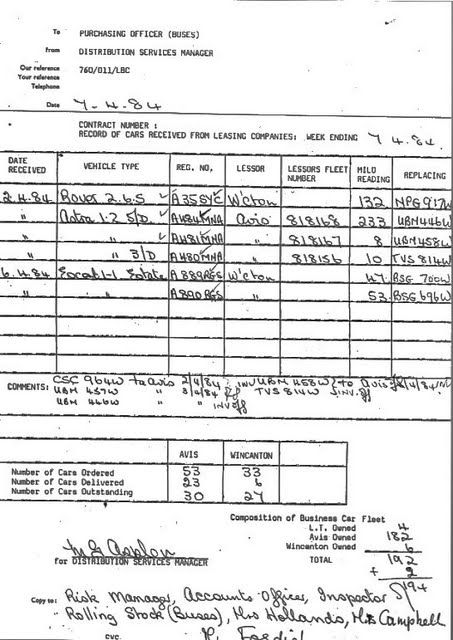 To PURCHASING OFFICER (BUSES)
From DISTRIBUTION SERVICES MANAGER
Our reference 760/011/LBC
Your reference
Telephone
Date 7.4.84
CONTRACT NUMBER :
RECORD OF CARS RECEIVED FROM LEASING COMPANIES: WEEK ENDING 7 4.84.
DATE RECEIVED VEHICLE TYPE REG. NO, LESSOR LESSORS FLEET NUMBER MILO READING REPLACING
2.4.84 Rover 2.6.S A355YC W'cton 132 NPG 917W
" Astra 1.2 5/D. A484MNA Avis 818168 233 UBM446W
" " A481MNA " 818167 8 UBM458W
" " 3/D A480MNA " 818156 10 TVS 814W
6.4.84 Escort 1-1 Estate A889RGS W'cton 47 BSG 700W
" " A890RGS " 53 BSG 696W
COMMENTS: CSC 964W to avis 2/4/84 ; inv UBM 458W } to Avis
UBM 457W " 3/4/84 TVS 814W } inv.off
UBM 446W " " inv off
AVIS WINCANTON
Number of Cars Ordered 53 33
Number of Cars Delivered 23 6
Number of Cars Outstanding 30 27
Composition of Business Car Fleet
L.T. Owned 4
Avis Owned 182
Wincanton Owned 6
TOTAL 192
+ 2
194
for DISTRIBUTION SERVICES MANAGER
Copy to: Risk Manager, Accounts Officer, Inspector
Rolling Stock (Buses), Mrs Hollands, Mrs Campbell